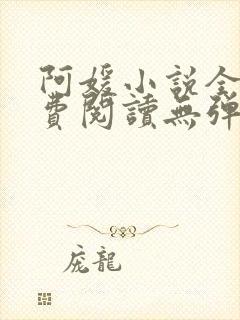 阿媛小说全
費閱讀無彈
庞龍